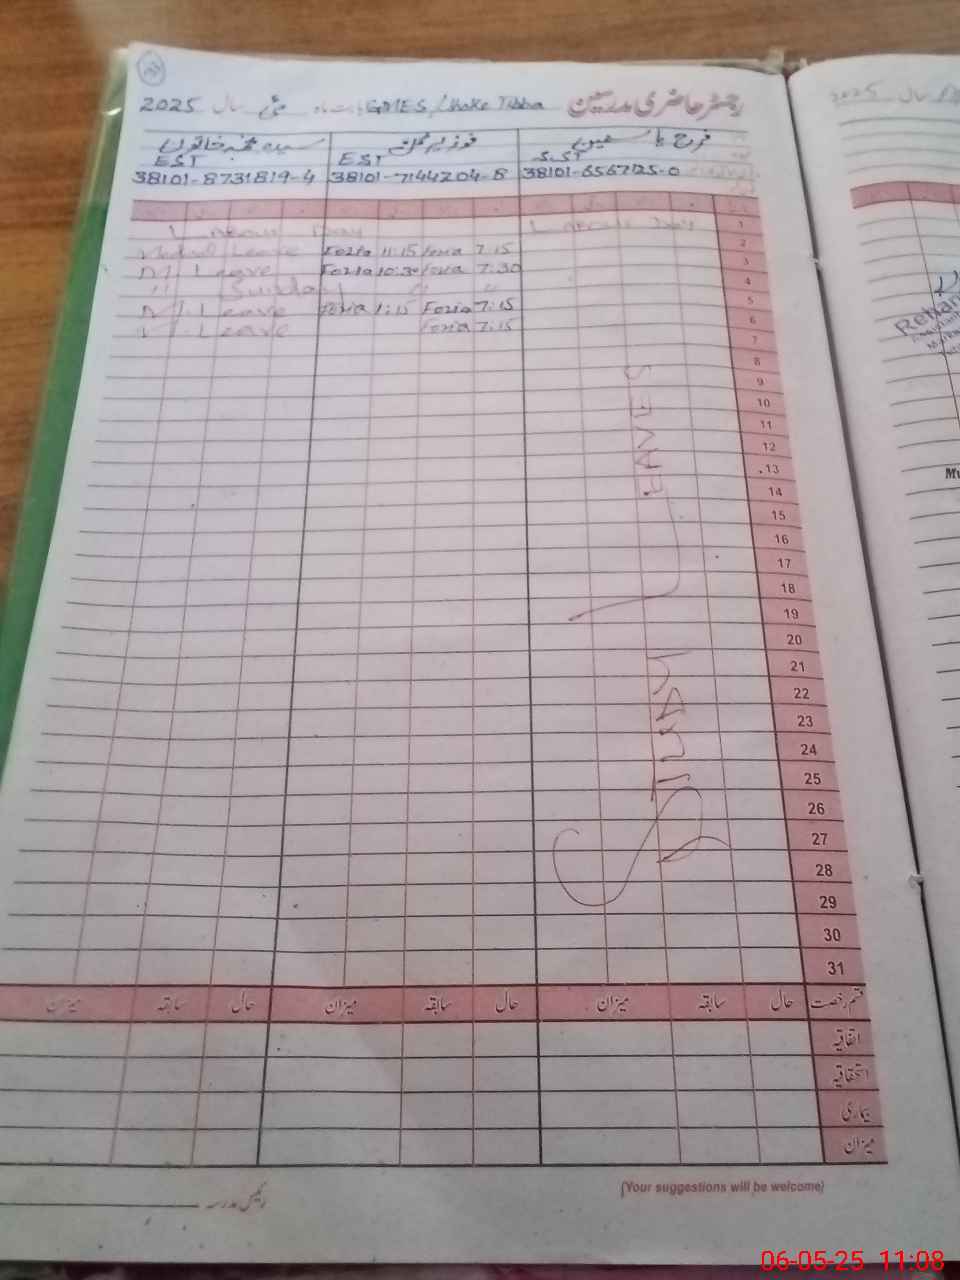 رجسٹر حاضری مدرسین GMES بابت ماہ مئی سال 2025
فرح یاسمین فوزیہ سیدہ خاتون
SST EST EST
38101-6567125-0 38101-7144204-8 38101-8731819-4
1 Labour Day Labour Day
2 7:15 Fozia 11:15 Fozia Leave
3 7:30 Fozia 10:30 Fozia M/Leave
4 " " Sunday "
5 Fozia 7:15 Fozia 1:15 M/Leave
6 Fozia 7:15 Leave
7
8
9
10
11
12
13
14
15
16
17
18
19
20
21
22
23
24
25
26
27
28
29
30
31
قسم رخصت حال سابقہ میزان حال سابقہ میزان حال سابقہ میزان
اتفاقیہ
استحقاقیہ
بیماری
میزان
(Your suggestions will be welcome)
رئیس مدرسہ
06-05-25 11:08